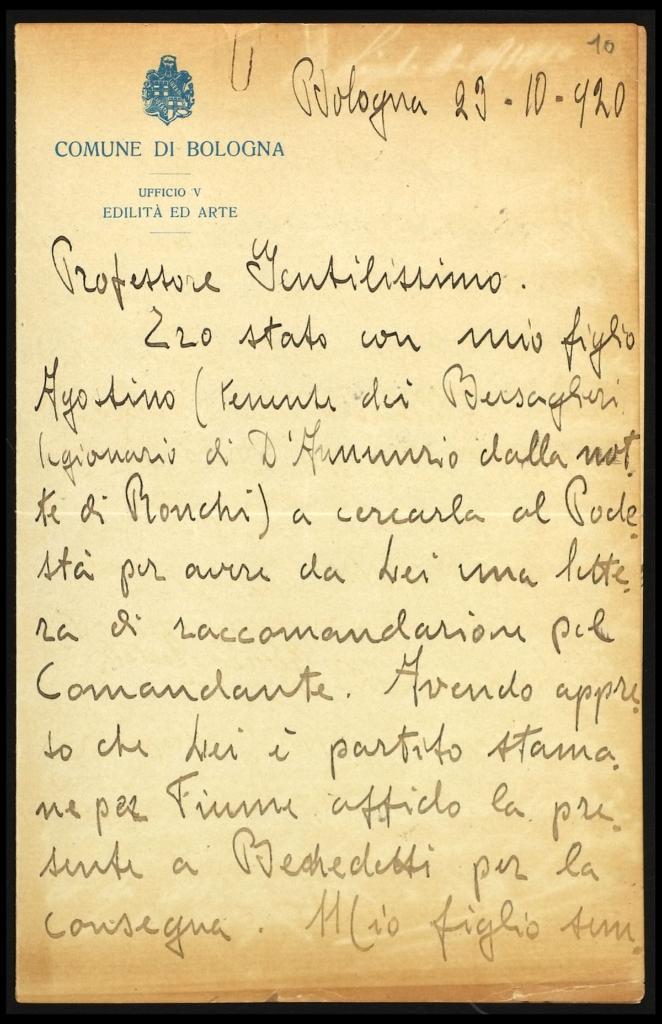 10
Bologna 23-10-920
COMUNE DI BOLOGNA
UFFICIO V
EDILITÀ ED ARTE
Professore Gentilissimo.
Ero stato con mio figlio
Agostino (tenente dei Bersaglieri
legionario di D'Annunzio dalla not-
te di Ronchi) a cercarla al Pode-
stà per avere da Lei una lette-
ra di raccomandazione pel
Comandante. Avendo appre-
so che Lei è partito stama-
ne per Fiume affido la pre-
sente a Benedetti per la
consegna. Mio figlio sen-